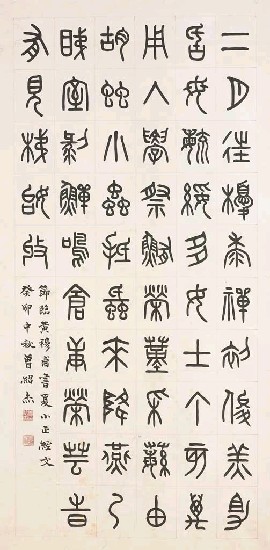 二月往耰黍禪初俊羔助
厥母粥綏多女士丁亥萬
用入學祭鮪榮菫采蘩由
胡䖵小蟲抵蚳來降燕乃
睇室剝鱓鳴倉庚榮芸時
有見稊始收
節臨黃穆甫書夏小正經文
癸卯中秋曾紹杰